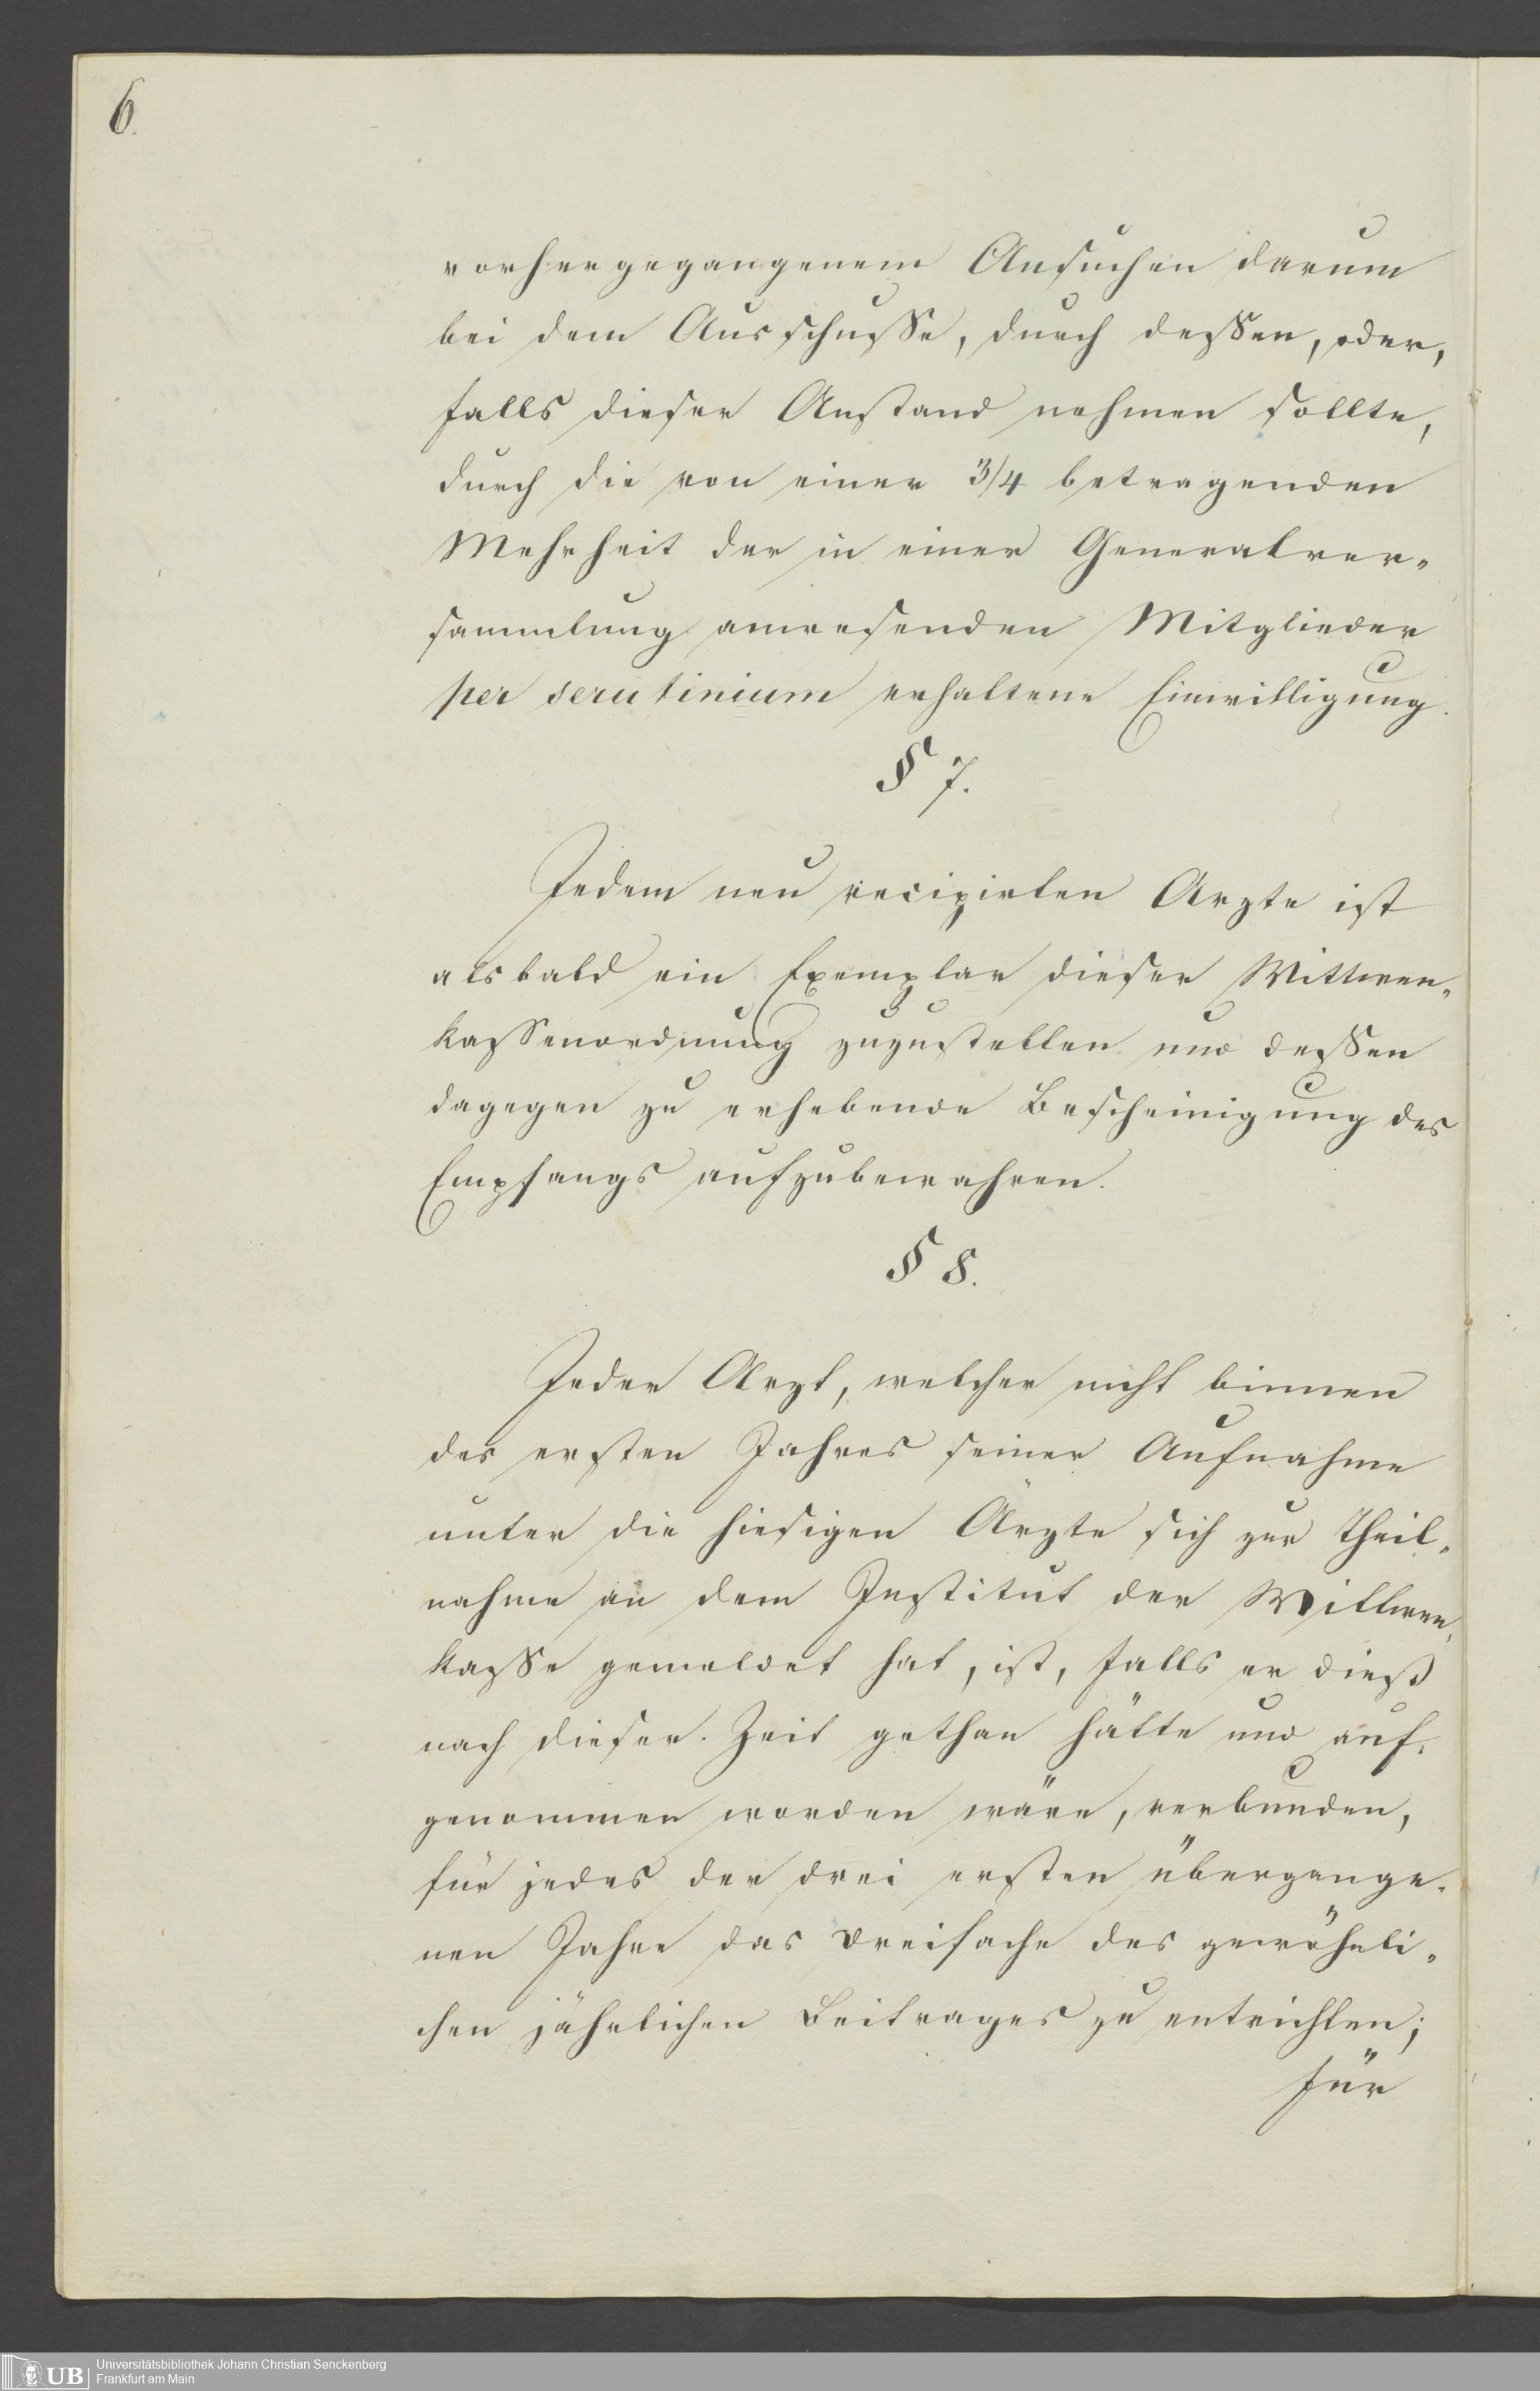 6.
vorhergegangenem Ansuchen darum
bei dem Ausschusse, durch dessen, oder,
falls dieser Anstand nehmen sollte,
durch die von einer 3/4 betragenden
Mehrheit der in einer Generalver-
sammlung anwesenden Mitglieder
per scrutinium erhaltene Einwilligung.
§ 7.
Jedem neu recipirten Arzte ist
alsbald ein Exemplar dieser Wittwen-
kassenordnung zuzustellen und dessen
dagegen zu erhebende Bescheinigung des
Empfangs aufzubewahren.
§ 8.
Jeder Arzt, welcher nicht binnen
des ersten Jahres seiner Aufnahme
unter die hiesigen Ärzte sich zur Theil-
nahme an dem Institut der Wittwen-
kasse gemeldet hat, ist, falls er dieß
nach dieser Zeit gethan hätte und auf-
genommen worden wäre, verbunden,
für jedes der drei ersten übergange-
nen Jahre das dreifache des gewöhnli-
chen jährlichen Beitrages zu entrichten;
für
UB
Universitätsbibliothek Johann Christian Senckenberg
Frankfurt am Main